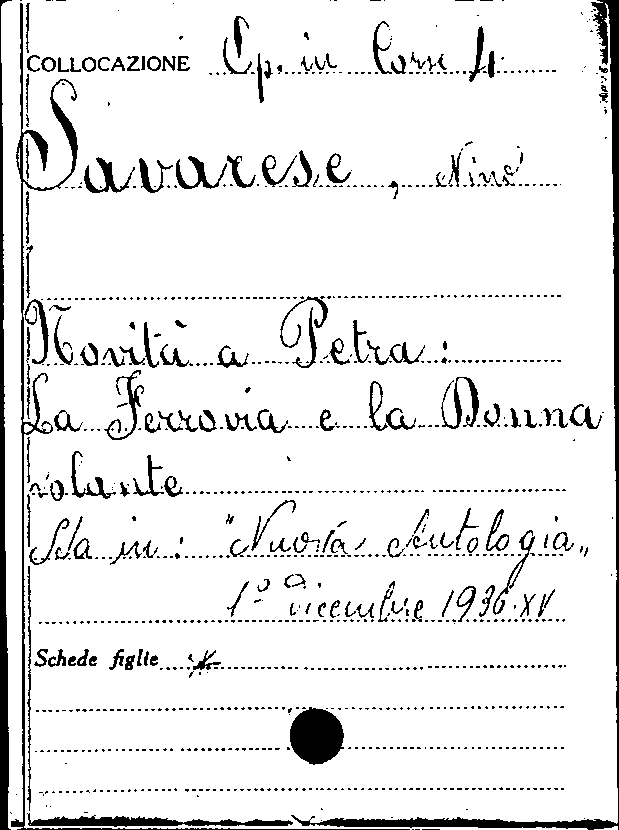 COLLOCAZIONE Ep. in Corsi 4
Savarese, Nino
Novità a Petra:
La Ferrovia e la Donna
volante
Sta in: "Nuova Antologia„
1º dicembre 1936.XV
Schede figlie